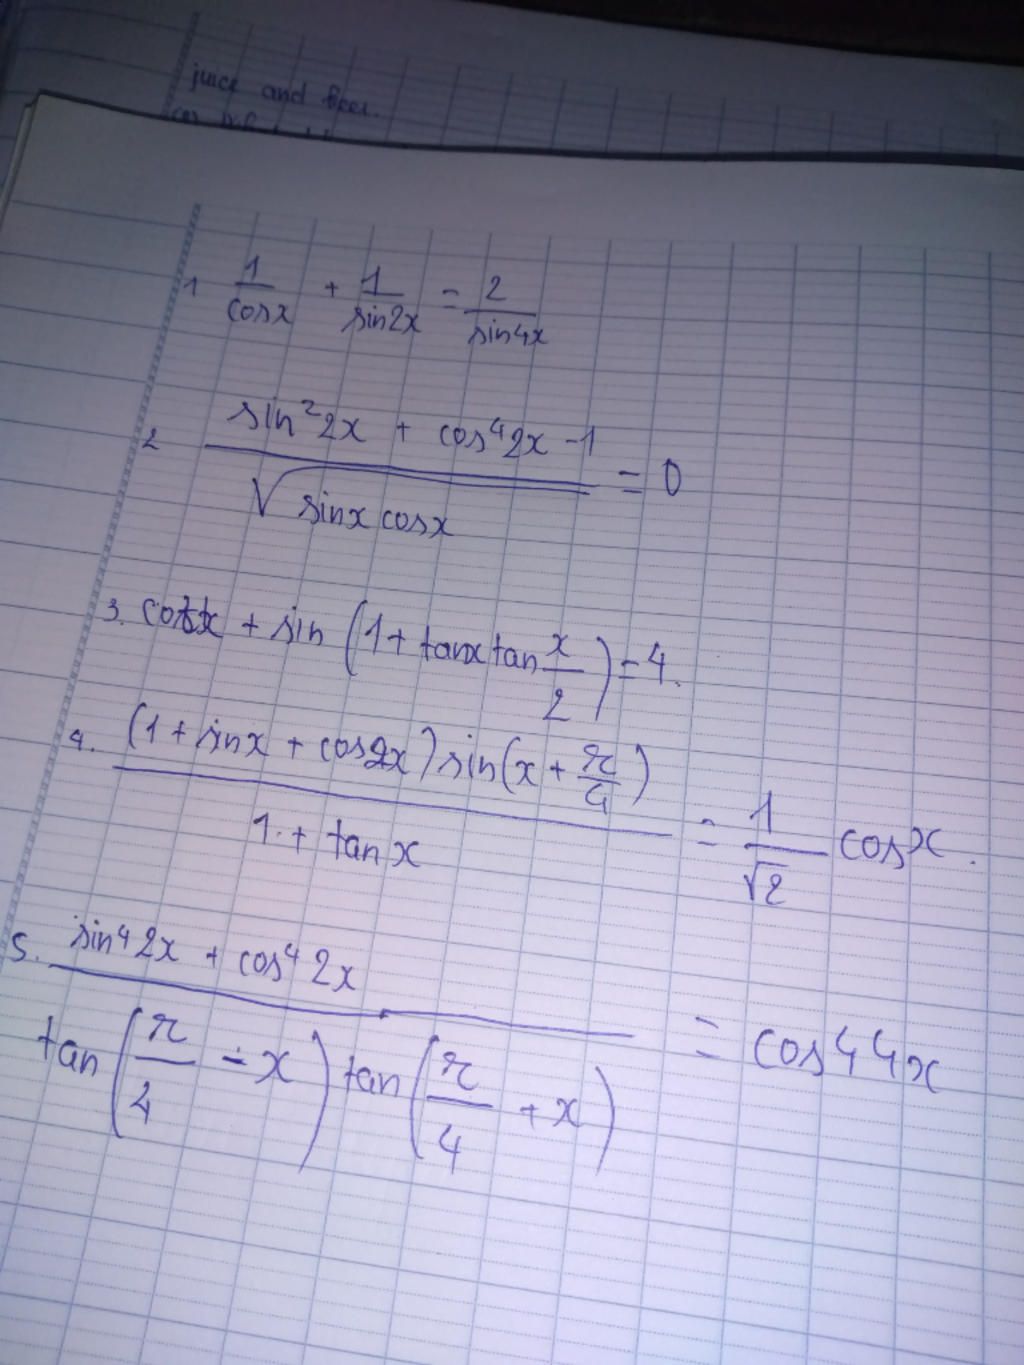 juice and beer.
1 1/cosx + 1/sin2x = 2/sin4x
2 (sin²2x + cos⁴2x - 1)/√(sinx cosx) = 0
3. cotx + sin (1 + tanx tan x/2) = 4.
4. ((1 + sinx + cos2x) sin(x + π/4))/(1 + tan x) = 1/√2 cosx.
5. (sin⁴2x + cos⁴2x)/(tan(π/4 - x) tan(π/4 + x)) = cos⁴4x